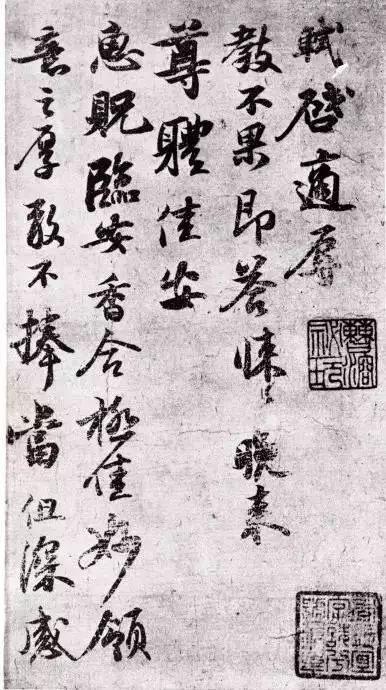 軾啓適辱
教不果即答悚悚晚来
尊體佳安
惠貺臨安香合極佳妙領
意之厚敢不捧當但深感